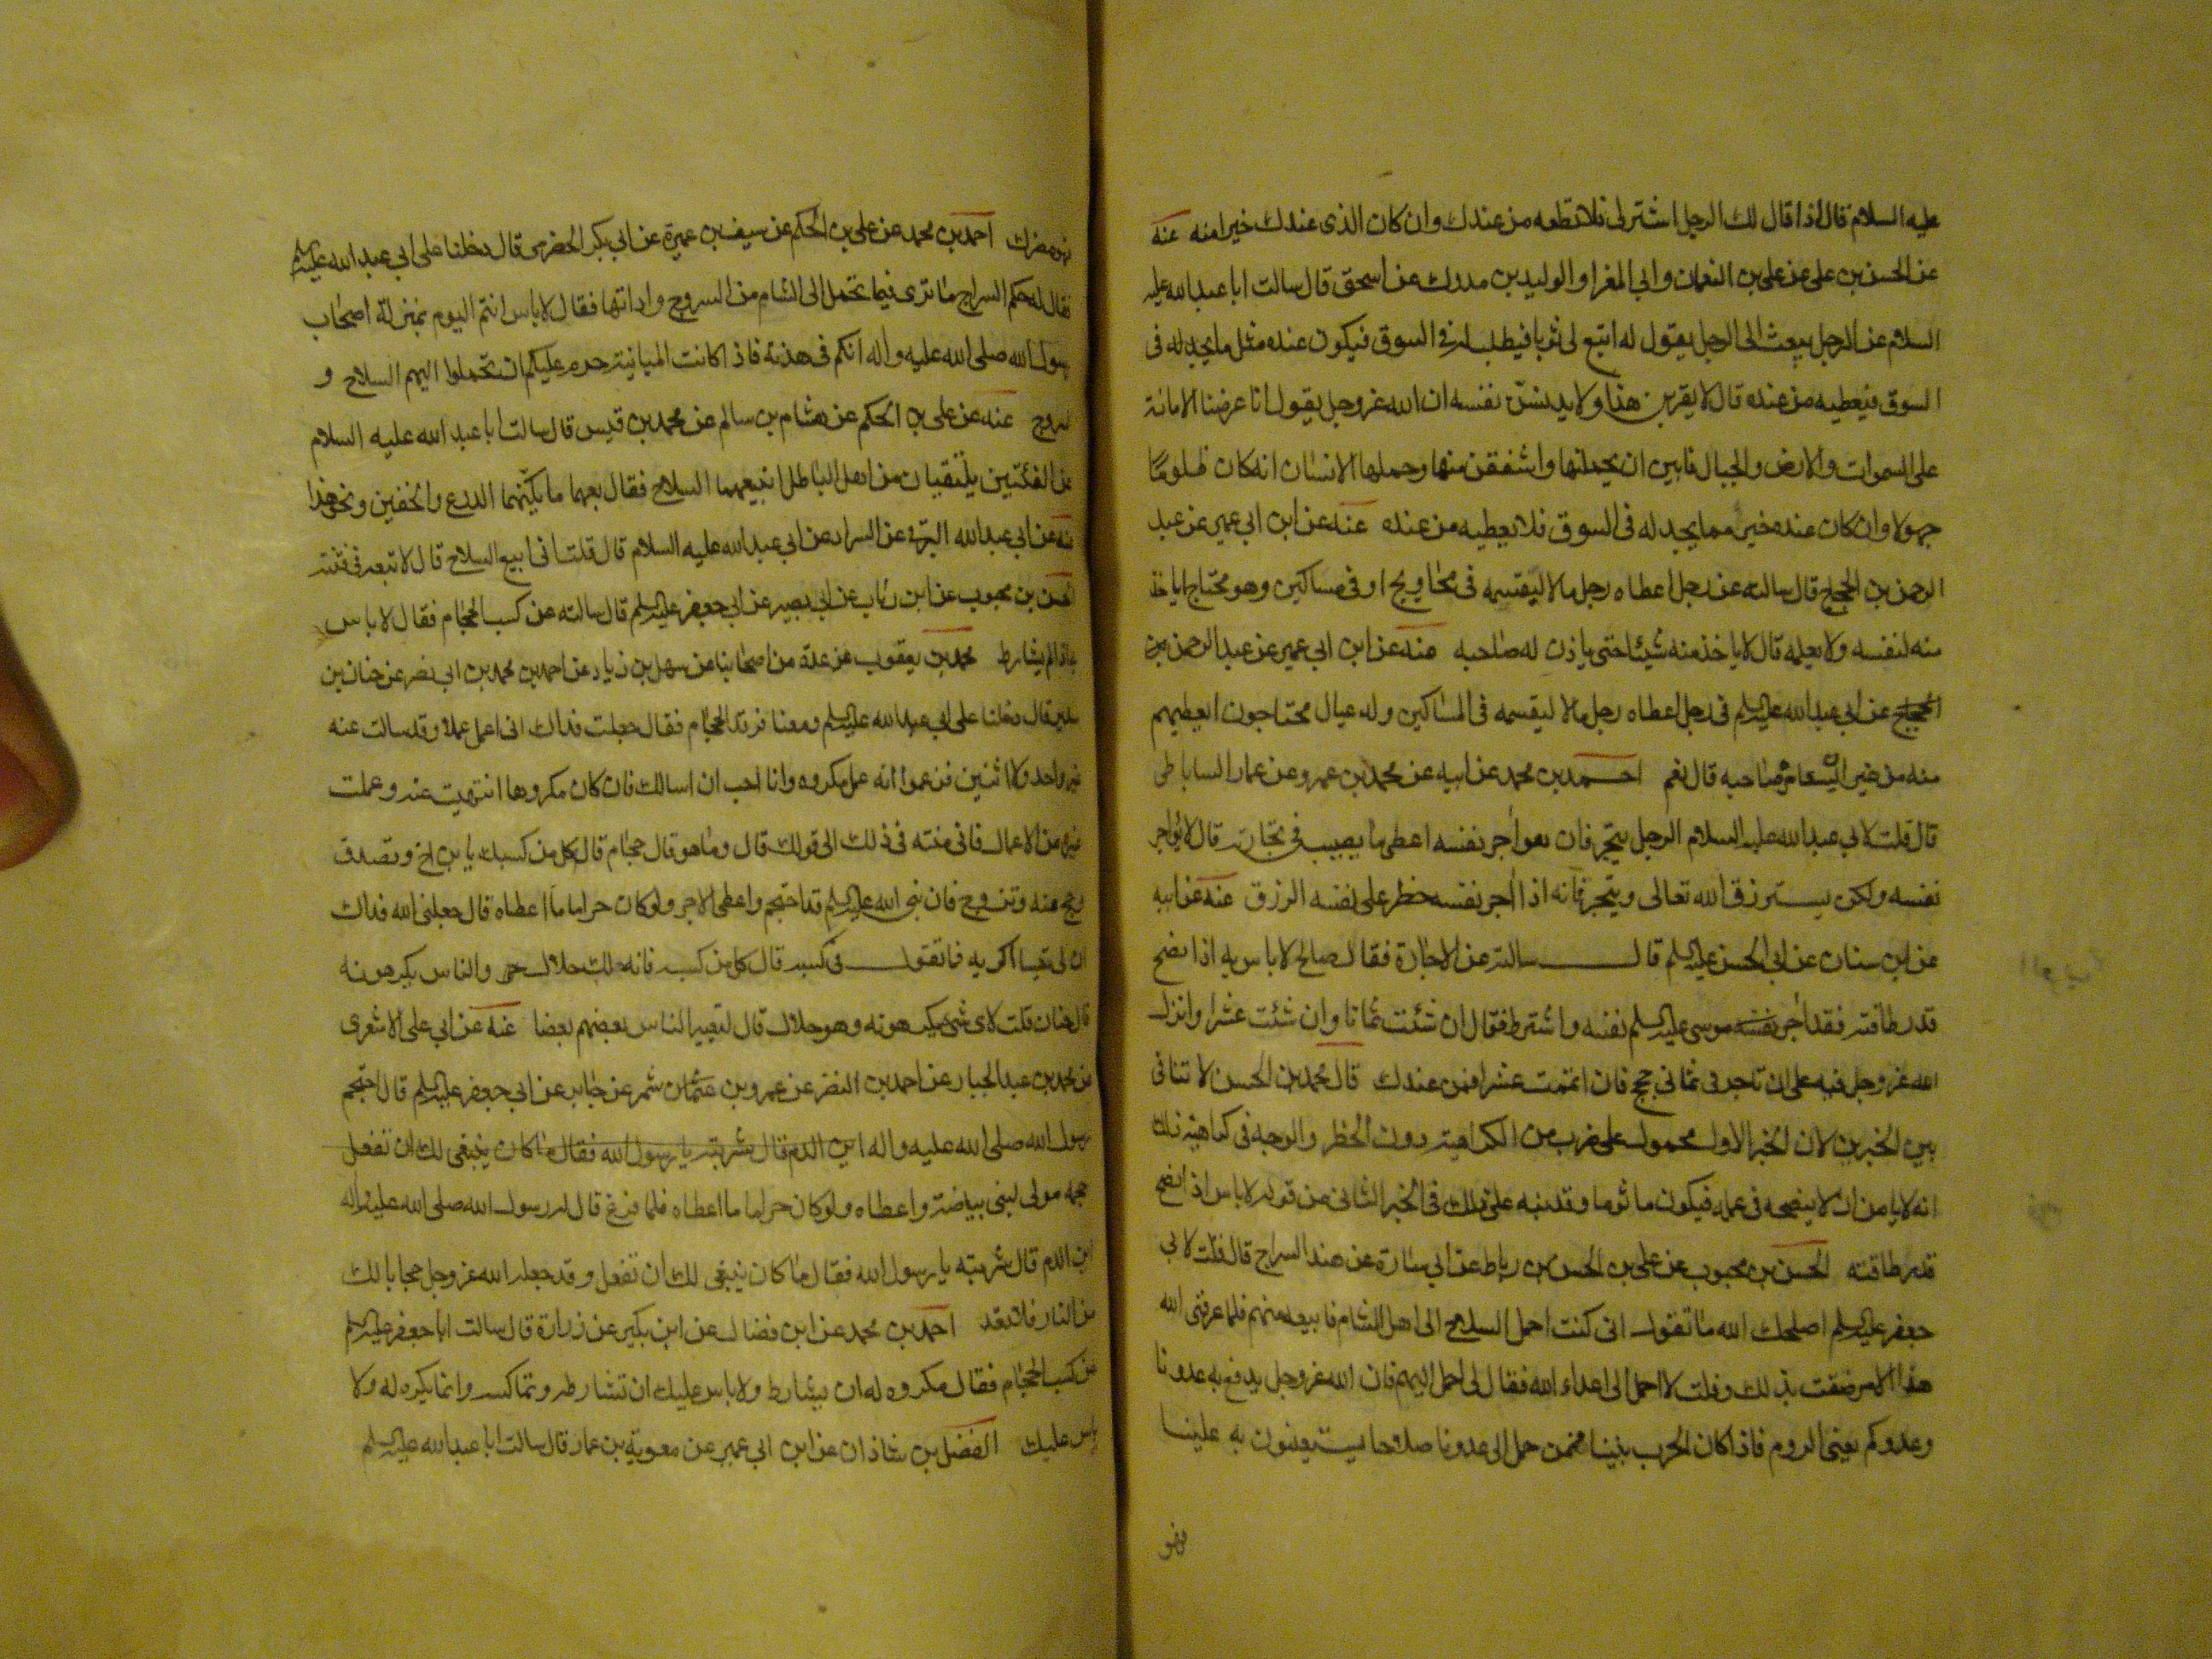 عليه السلام قال اذا قال لك الرجل اشتر لى فلا تعطه من عندك وان كان الذى عندك خيرا منه عنه
عن الحسن بن على عن على بن النعمان وابي المغرا والوليد بن مدرك عن اسحق قال سالت ابا عبد الله عليه
السلام عن الرجل يبعث الى الرجل يقول له ابتع لى ثوبا فيطلب له في السوق فيكون عنده مثل ما يجد له فى
السوق فيعطيه من عنده قال لا يقربن هذا ولا يدنس نفسه ان الله عز وجل يقول انا عرضنا الامانة
على السموات والارض والجبال فابين ان يحملنها واشفقن منها وحملها الانسان انه كان ظلوما
جهولا وان كان عنده خير مما يجد له فى السوق فلا يعطيه من عنده عنه عن ابن ابي عمير عن عبد
الرحمن بن الحجاج قال سالته عن رجل اعطاه رجل مالا ليقسمه فى محاويج او فى مساكين وهو محتاج اياخذ
منه لنفسه ولا يعلمه قال لا ياخذ منه شيئا حتى ياذن له صاحبه عنه عن ابن ابي عمير عن عبد الرحمن بن
الحجاج عن ابي عبد الله عليه السلم فى رجل اعطاه رجل مالا ليقسمه فى المساكين وله عيال محتاجون ايعطيهم
منه من غير ان يستامر صاحبه قال نعم احمد بن محمد عن ابيه عن محمد بن عمرو عن عمار الساباطى
قال قلت لابي عبد الله عليه السلام الرجل يتجر فان هو اجر نفسه اعطى ما يصيب فى تجارته قال لا يواجر
نفسه ولكن يسترزق الله تعالى ويتجر فانه اذا اجر نفسه حظر على نفسه الرزق عنه عن ابيه
عن ابن سنان عن ابي الحسن عليه السلم قال سالته عن الاجارة فقال صالح لا باس به اذا نصح
قدر طاقته فقد اجر نفسه موسى عليه السلم نفسه واشترط فقال ان شئت ثمانا وان شئت عشرا وانزل
الله عز وجل فيه على ان تاجرنى ثمانى حجج فان اتممت عشرا فمن عندك قال محمد بن الحسن لا تنافى
بين الخبرين لان الخبر الاول محمول على ضرب من الكراهية دون الحظر والوجه فى كراهية ذلك
انه لا يامن ان لا ينصحه فى عمله فيكون ماثوما وقد نبه على ذلك فى الخبر الثانى من قوله لا باس اذا نصح
قدر طاقته الحسن بن محبوب عن على بن الحسن بن رباط عن ابي سارة عن هند السراج قال قلت لابي
جعفر عليه السلم اصلحك الله ما تقول انى كنت احمل السلاح الى اهل الشام فابيعه منهم فلما عرفنى الله
هذا الامر ضقت بذلك وقلت لا احمل الى اعداء الله فقال لى احمل اليهم فان الله عز وجل يدفع به عدونا
وعدوكم يعنى الروم فاذا كان الحرب بيننا فمن حمل الى عدونا صلاحا يستعينون به علينا
فهو
فهو مشرك احمد بن محمد عن على بن الحكم عن سيف بن عميرة عن ابي بكر الحضرمى قال دخلنا على ابي عبد الله عليه السلم
فقال له حكم السراج ما ترى فيما تحمل الى الشام من السروج واداتها فقال لا باس انتم اليوم بمنزلة اصحاب
رسول الله صلى الله عليه واله انكم فى هدنة فاذا كانت المباينة حرم عليكم ان تحملوا اليهم السلاح و
السروج عنه عن على بن الحكم عن هشام بن سالم عن محمد بن قيس قال سالت ابا عبد الله عليه السلام
عن الفئتين يلتقيان من اهل الباطل ابيعهما السلاح فقال بعهما ما يكنهما الدرع والخفين ونحو هذا
عنه عن ابي عبد الله البرقى عن السراد عن ابي عبد الله عليه السلام قال قلت انى ابيع السلاح قال لا تبعه فى فتنة
الحسن بن محبوب عن ابن رئاب عن ابي بصير عن ابي جعفر عليه السلم قال سالته عن كسب الحجام فقال لا باس
به اذا لم يشارط محمد بن يعقوب عن عدة من اصحابنا عن سهل بن زياد عن احمد بن محمد بن ابي نصر عن حنان بن
سدير قال دخلنا على ابي عبد الله عليه السلم ومعنا فرقد الحجام فقال جعلت فداك انى اعمل عملا وقد سالت عنه
غير واحد ولا اثنين فزعموا انه عمل مكروه وانا احب ان اسالك فان كان مكروها انتهيت عنه وعملت
غيره من الاعمال فانى منته فى ذلك الى قولك قال وما هو قال حجام قال كل من كسبك يا بن اخ وتصدق
وحج منه وتزوج فان نبى الله عليه السلم قد احتجم واعطى الاجر ولو كان حراما ما اعطاه قال جعلنى الله فداك
ان لى تيسا اكريه فما تقول فى كسبه قال كل من كسبه فانه لك حلال والناس يكرهونه
قال حنان قلت لاى شىء يكرهونه وهو حلال قال لتعيير الناس بعضهم بعضا عنه عن ابي على الاشعرى
عن محمد بن عبد الجبار عن احمد بن النضر عن عمرو بن عثمان شمر عن جابر عن ابي جعفر عليه السلم قال احتجم
رسول الله صلى الله عليه واله اين الدم قال شربته يا رسول الله فقال ما كان ينبغى لك ان تفعل
حجمه مولى لبنى بياضة واعطاه ولو كان حراما ما اعطاه فلما فرغ قال له رسول الله صلى الله عليه واله
اين الدم قال شربته يا رسول الله فقال ما كان ينبغى لك ان تفعل وقد جعله الله عز وجل حجابا لك
من النار فلا تعد احمد بن محمد عن ابن فضال عن ابن بكير عن زرارة قال سالت ابا جعفر عليه السلم
عن كسب الحجام فقال مكروه له ان يشارط ولا باس عليك ان تشارطه وتماكسه وانما يكره له ولا
باس عليك الفضل بن شاذان عن ابن ابي عمير عن معوية بن عمار قال سالت ابا عبد الله عليه السلم